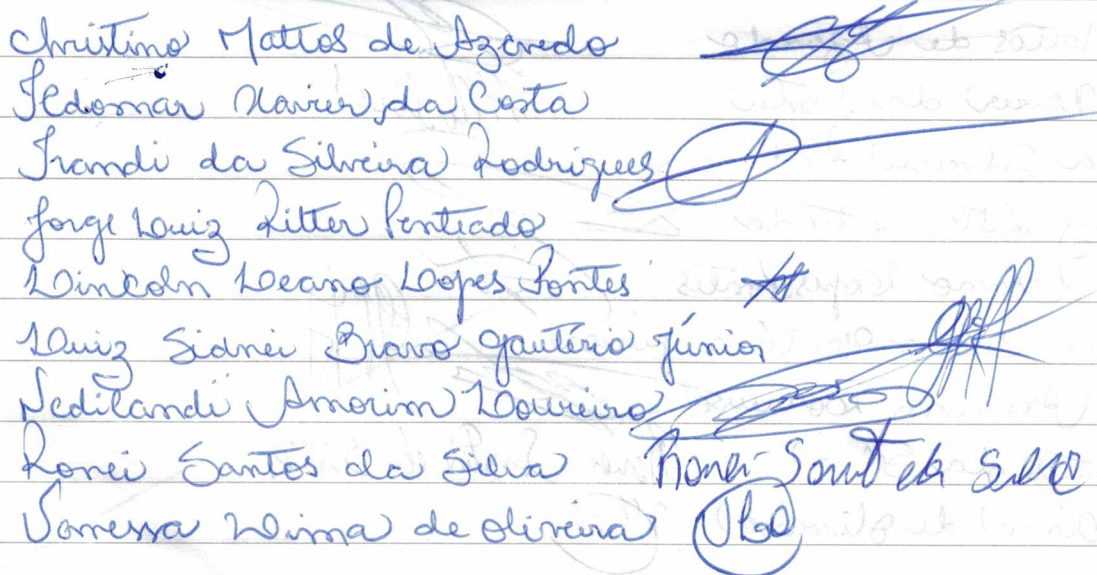 Christino Mattos de Azevedo
Ildomar Xavier da Costa
Irandi da Silveira Rodrigues
Jorge Luiz Ritter Penteado
Lincoln Leano Lopes Pontes
Luiz Sidnei Bravo Gautério Júnior
Nedilandi Amorim Loureiro
Ronei Santos da Silva Ronei Sant da Silva
Vanessa Lima de oliveira VLO